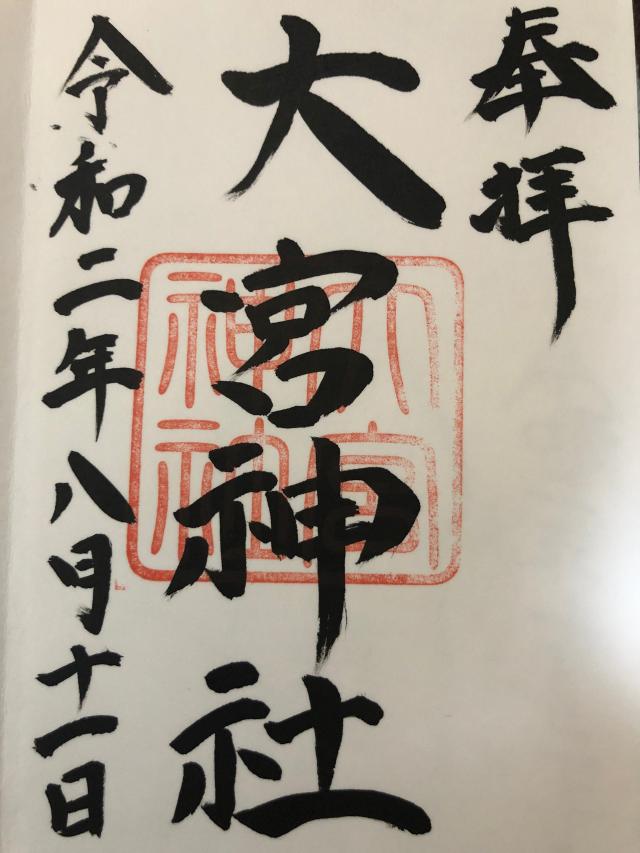 奉拝
大宮神社
大宮
神社
令和二年八月十一日